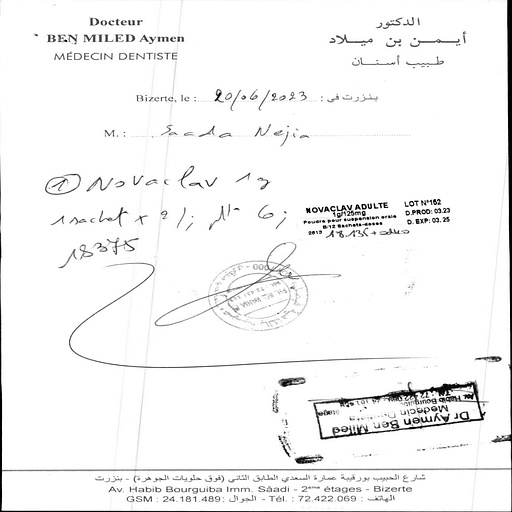 Docteur
BEN MILED Aymen
MÉDECIN DENTISTE
الدكتور
أيمن بن ميلاد
طبيب أسنان
Bizerte, le : 20/06/2023 : بنزرت في
M. : Saada Nejia
① Novaclav 1g
1 sachet x 2/j
6j
18375
NOVACLAV ADULTE
1g/125mg
Poudre pour suspension orale
B/12 Sachets-doses
LOT N°162
D.PROD: 03.23
D. EXP: 03. 25
Dr Aymen Ben Miled
Médecin Dentiste
Av. Habib Bourguiba
شارع الحبيب بورقيبة عمارة السعدي الطابق الثاني (فوق حلويات الجوهرة) - بنزرت
Av. Habib Bourguiba Imm. Sâadi - 2ème étages - Bizerte
GSM : 24.181.489 : الجوال - Tél. : 72.422.069 : الهاتف